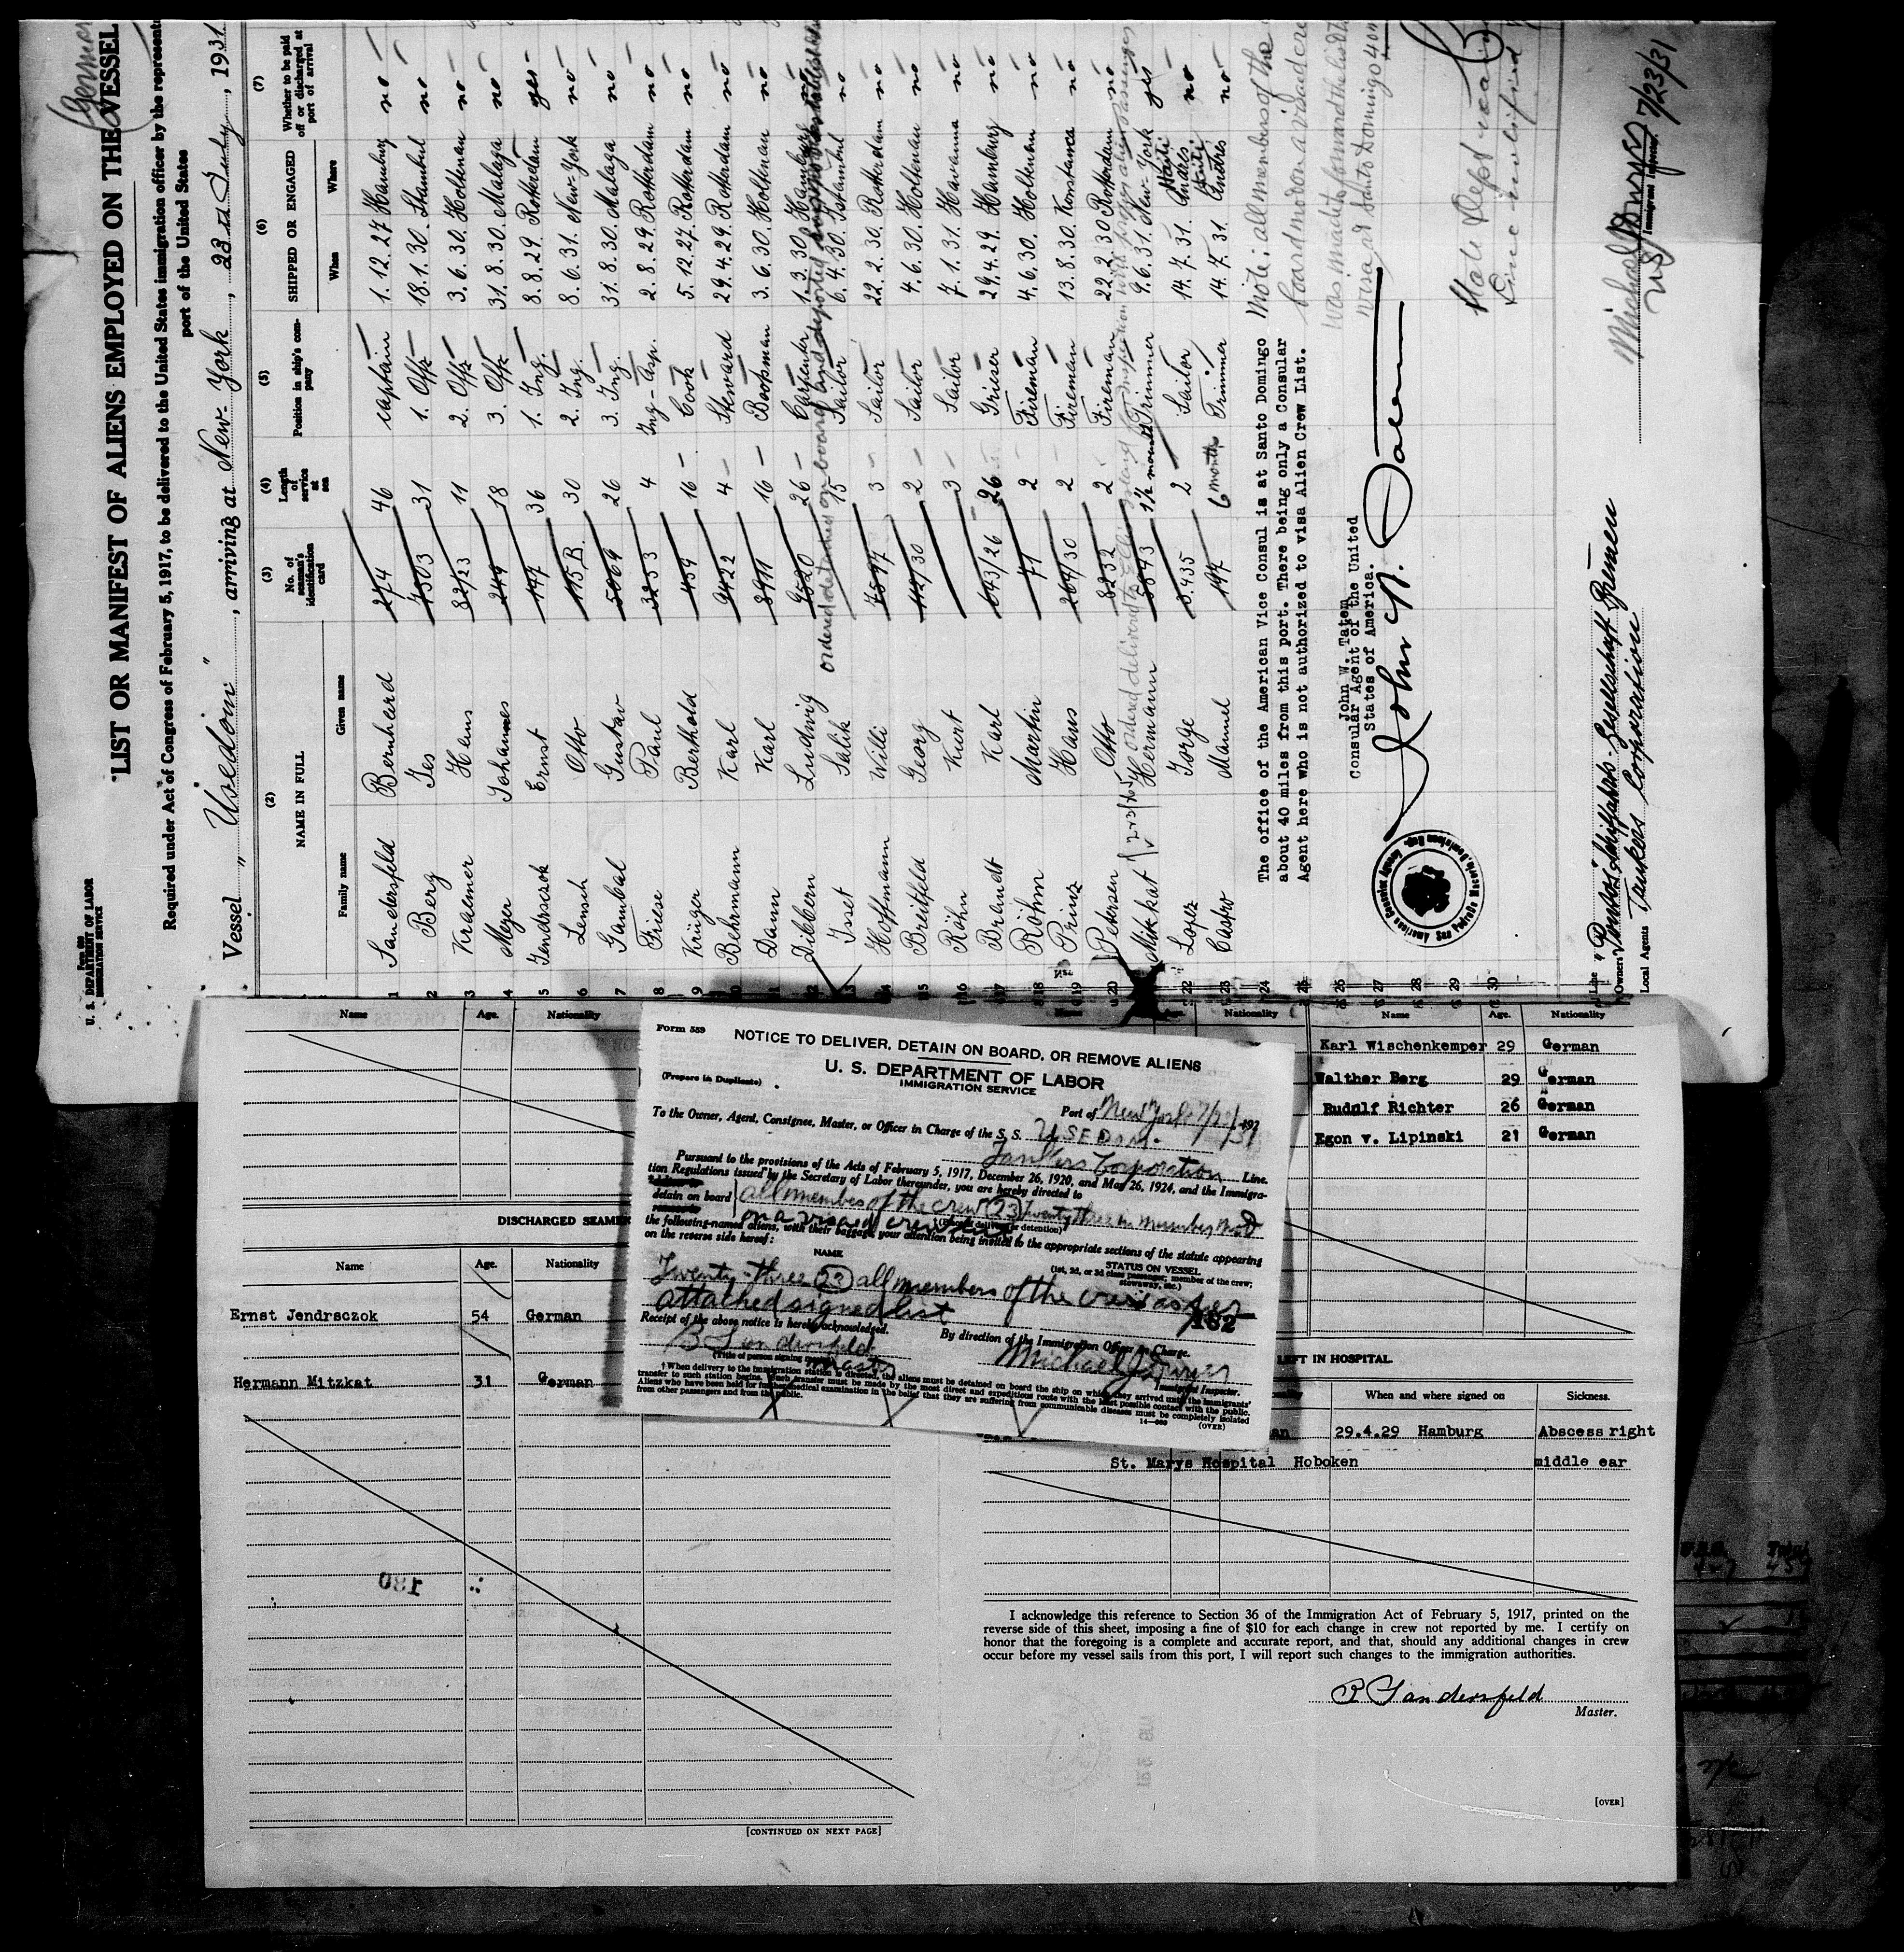 German
Form 689
U. S. DEPARTMENT OF LABOR
IMMIGRATION SERVICE
LIST OR MANIFEST OF ALIENS EMPLOYED ON THE VESSEL
Required under Act of Congress of February 5, 1917, to be delivered to the United States immigration officer by the represent
port of the United States
Vessel " Usedom ", arriving at New-York, 23rd July, 1931
(2) (3) (4) (5) (6) (7)
NAME IN FULL No. of seaman's identification card Length of service at sea Position in ship's company SHIPPED OR ENGAGED Whether to be paid off or discharged at port of arrival
Family name Given name When Where
1 Sandersfeld Bernhard 274 46 captain 1.12.27 Hamburg no
2 Berg Jes 4503 31 1. Offz 18.1.30. Stambul no
3 Kraemer Hans 82/23 11 2. Offz 3.6.30. Holtenau no
4 Meyer Johannes 249 18 3. Offz 31.8.30. Malaga no
5 Jendrsczok Ernst 447 36 1. Ing. 8.8.29. Rotterdam yes
6 Lensch Otto 115.B. 30 2. Ing. 8.6.31. New-York no
7 Gambal Gustav 5069 26 3. Ing. 31.8.30. Malaga no
8 Friese Paul 3253 4 Ing-Asp. 2.8.29. Rotterdam no
9 Krüger Berthold 459 16 Cook 5.12.27. Rotterdam no
10 Behrmann Karl 9422 4 Steward 29.4.29. Rotterdam no
11 Dann Karl 8911 16 Bootsman 3.6.30. Holtenau no
12 Dibbern Ludwig 9520 26 Carpenter 1.3.30. Hamburg no
13 Isset Salik ordered detained on board and deported 15 Sailor 6.4.30. Istambul no
14 Hoffmann Willi 7597 3 Sailor 22.2.30. Rotterdam no
15 Breitfeld Georg 42/30 2 Sailor 4.6.30. Holtenau no
16 Röhn Kurt 3 Sailor 7.1.31. Havanna no
17 Brandt Karl 643/26 26 Grieser 29.4.29. Hamburg no
18 Röhm Martin 41 2 Fireman 4.6.30. Holtenau no
19 Prinz Hans 264/30 2 Fireman 13.8.30. Konstanca no
20 Petersen Otto 8232 2 Fireman 22.2.30 Rotterdam no
ordered delivered to Ellis Island for inspection
Mitzkat Hermann 5843 1½ months Trimmer 9.6.31. New-York yes
22 Lopez Jorge 3.435 2 Sailor 14.7.31. Andres Haiti no
23 Castro Manuel 197 6 month Trimmer 14.7.31. Andres Haiti no
24
25
26
27
28
29
30
The office of the American Vice Consul is at Santo Domingo
about 40 miles from this port. There being only a Consular
Agent here who is not authorized to visa Alien Crew List.
John W. Tatem
Consular Agent of the United
States of America.
John W. Tatem
American Consular Agency, San Pedro de Macoris, Dominican Rep.
Note: all members of the
board not on a visaed crew
was made to forward the list
visa at Santo Domingo 40 m
State Dept
Fine
Line "
Owners
Local Agents Tankers Corporation
Michael J Dwyer 7/23/31
Immigrant Inspector.
Name Age. Nationality
Name Age. Nationality
Karl Wischenkemper 29 German
Walther Berg 29 German
Rudolf Richter 26 German
Egon v. Lipinski 21 German
DISCHARGED SEAMEN
Name Age. Nationality
Ernst Jendrsczok 54 German
Hermann Mitzkat 31 German
180
[CONTINUED ON NEXT PAGE]
Form 559
NOTICE TO DELIVER, DETAIN ON BOARD, OR REMOVE ALIENS
U. S. DEPARTMENT OF LABOR
IMMIGRATION SERVICE
(Prepare in Duplicate)
Port of New York 7/23/31, 192
To the Owner, Agent, Consignee, Master, or Officer in Charge of the S. S. USEDOM.
Tankers Corporation Line.
Pursuant to the provisions of the Acts of February 5, 1917, December 26, 1920, and May 26, 1924, and the Immigra-
tion Regulations issued by the Secretary of Labor thereunder, you are hereby directed to
detain on board all members of the crew (23) Twenty three in number, not
on a visaed crew list
the following-named aliens, with their baggage, your attention being invited to the appropriate sections of the statute appearing
on the reverse side hereof:
NAME STATUS ON VESSEL
(1st, 2d, or 3d class passenger; member of the crew;
stowaway, etc.)
Twenty-three (23) all members of the crew as per
attached signed list
182
Receipt of the above notice is hereby acknowledged.
By direction of the Immigration Officer in Charge.
B Sandersfeld
(Title of person signing)
Master
Michael J Dwyer
Immigrant Inspector.
† When delivery to the immigration station is directed, the aliens must be detained on board the ship on which they arrived until the immigrants'
transfer to such station begins. Such transfer must be made by the most direct and expeditious route with the least possible contact with the public.
Aliens who have been held for further medical examination in the belief that they are suffering from communicable diseases must be completely isolated
from other passengers and from the public.
14—660 (OVER)
LEFT IN HOSPITAL
When and where signed on Sickness.
29.4.29 Hamburg Abscess right
St. Marys Hospital Hoboken middle ear
I acknowledge this reference to Section 36 of the Immigration Act of February 5, 1917, printed on the
reverse side of this sheet, imposing a fine of $10 for each change in crew not reported by me. I certify on
honor that the foregoing is a complete and accurate report, and that, should any additional changes in crew
occur before my vessel sails from this port, I will report such changes to the immigration authorities.
B Sandersfeld
Master.
[OVER]